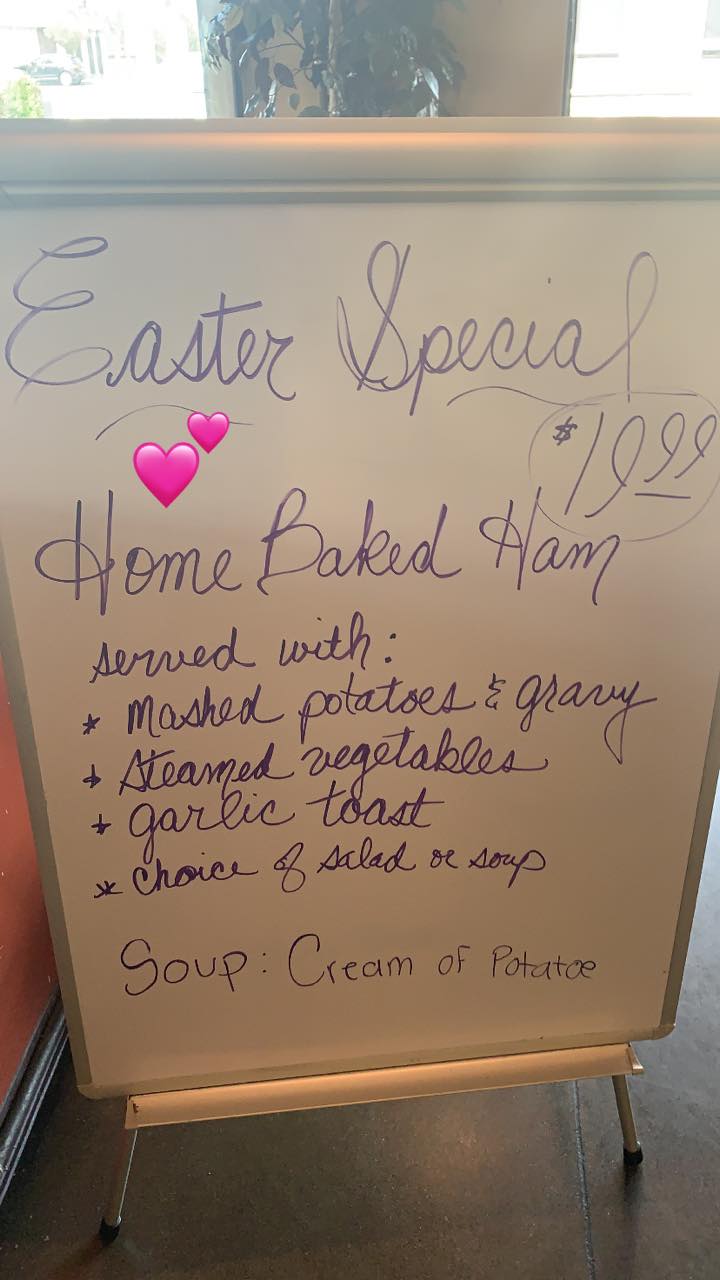 Easter Special
$19.99
Home Baked Ham
served with:
* Mashed potatoes & gravy
* Steamed vegetables
* garlic toast
* choice of salad or soup
Soup: Cream of Potatoe